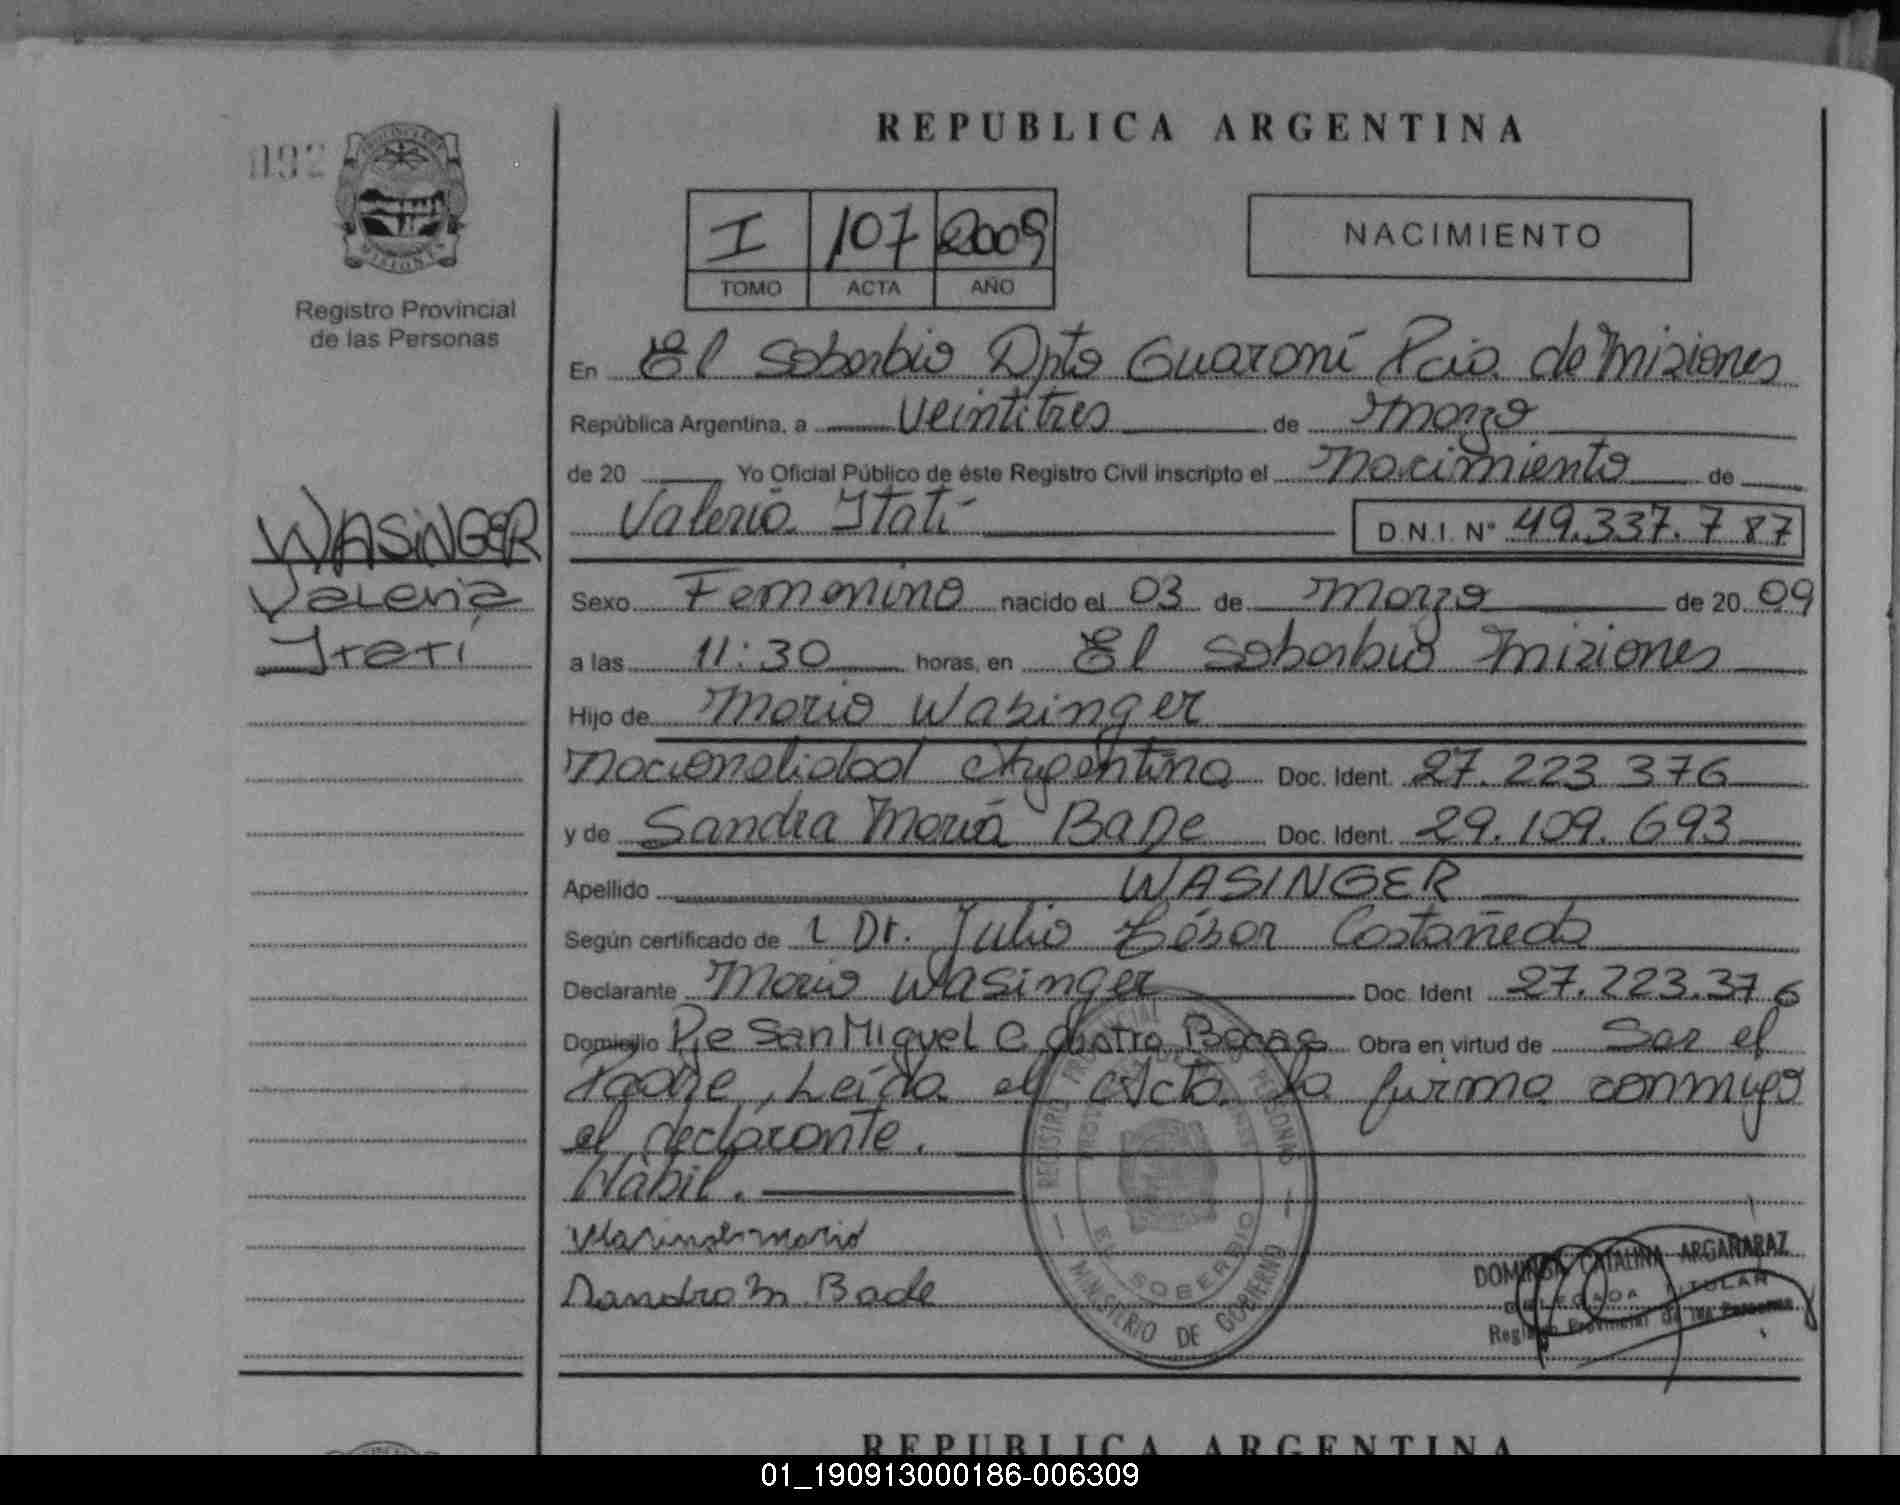 REPUBLICA ARGENTINA
092
I 107 2009
TOMO ACTA AÑO
NACIMIENTO
Registro Provincial
de las Personas
WASINGER
Valeria
Itatí
En El Soberbio Dpto Guaraní Pcia. de Misiones
República Argentina, a veintitres de Marzo
de 20 Yo Oficial Público de éste Registro Civil inscripto el Nacimiento de
Valeria Itatí D.N.I. Nº 49.337.787
Sexo Femenino nacido el 03 de Marzo de 20 09
a las 11:30 horas, en El Soberbio Misiones
Hijo de Mario Wasinger
Nacionalidad Argentina Doc. Ident. 27.223 376
y de Sandra María Bade Doc. Ident. 29.109.693
Apellido WASINGER
Según certificado de Dr. Julio César Costañeda
Declarante Mario Wasinger Doc. Ident 27.223.376
Domicilio Pje San Miguel C. Cuatro Bocas Obra en virtud de Ser el
Padre, Leída el Acta la firma conmigo
el declarante.
Hábil.
Wasinger Mario
Sandra M. Bade
REGISTRO PROVINCIAL DE LAS PERSONAS
EL SOBERBIO
MINISTERIO DE GOBIERNO
DOMINGA CATALINA ARGAÑARAZ
DELEGADA TITULAR
Registro Provincial de las Personas
REPUBLICA ARGENTINA
01_190913000186-006309